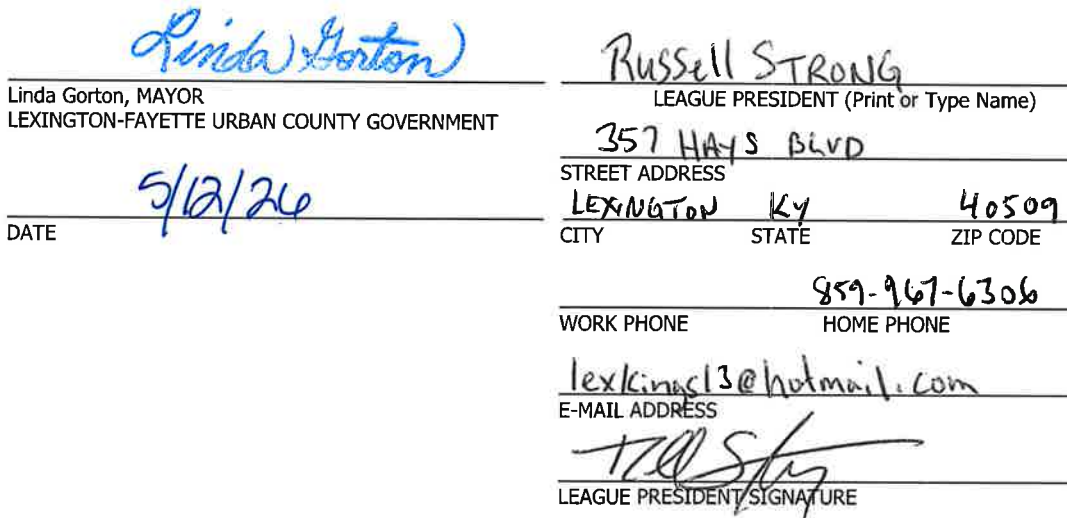 Linda Gorton
Linda Gorton, MAYOR
LEXINGTON-FAYETTE URBAN COUNTY GOVERNMENT
5/12/26
DATE
Russell STRONG
LEAGUE PRESIDENT (Print or Type Name)
357 HAYS BLVD
STREET ADDRESS
LEXNGTON KY 40509
CITY STATE ZIP CODE
859-967-6306
WORK PHONE HOME PHONE
lexkings13@hotmail.com
E-MAIL ADDRESS
LEAGUE PRESIDENT SIGNATURE